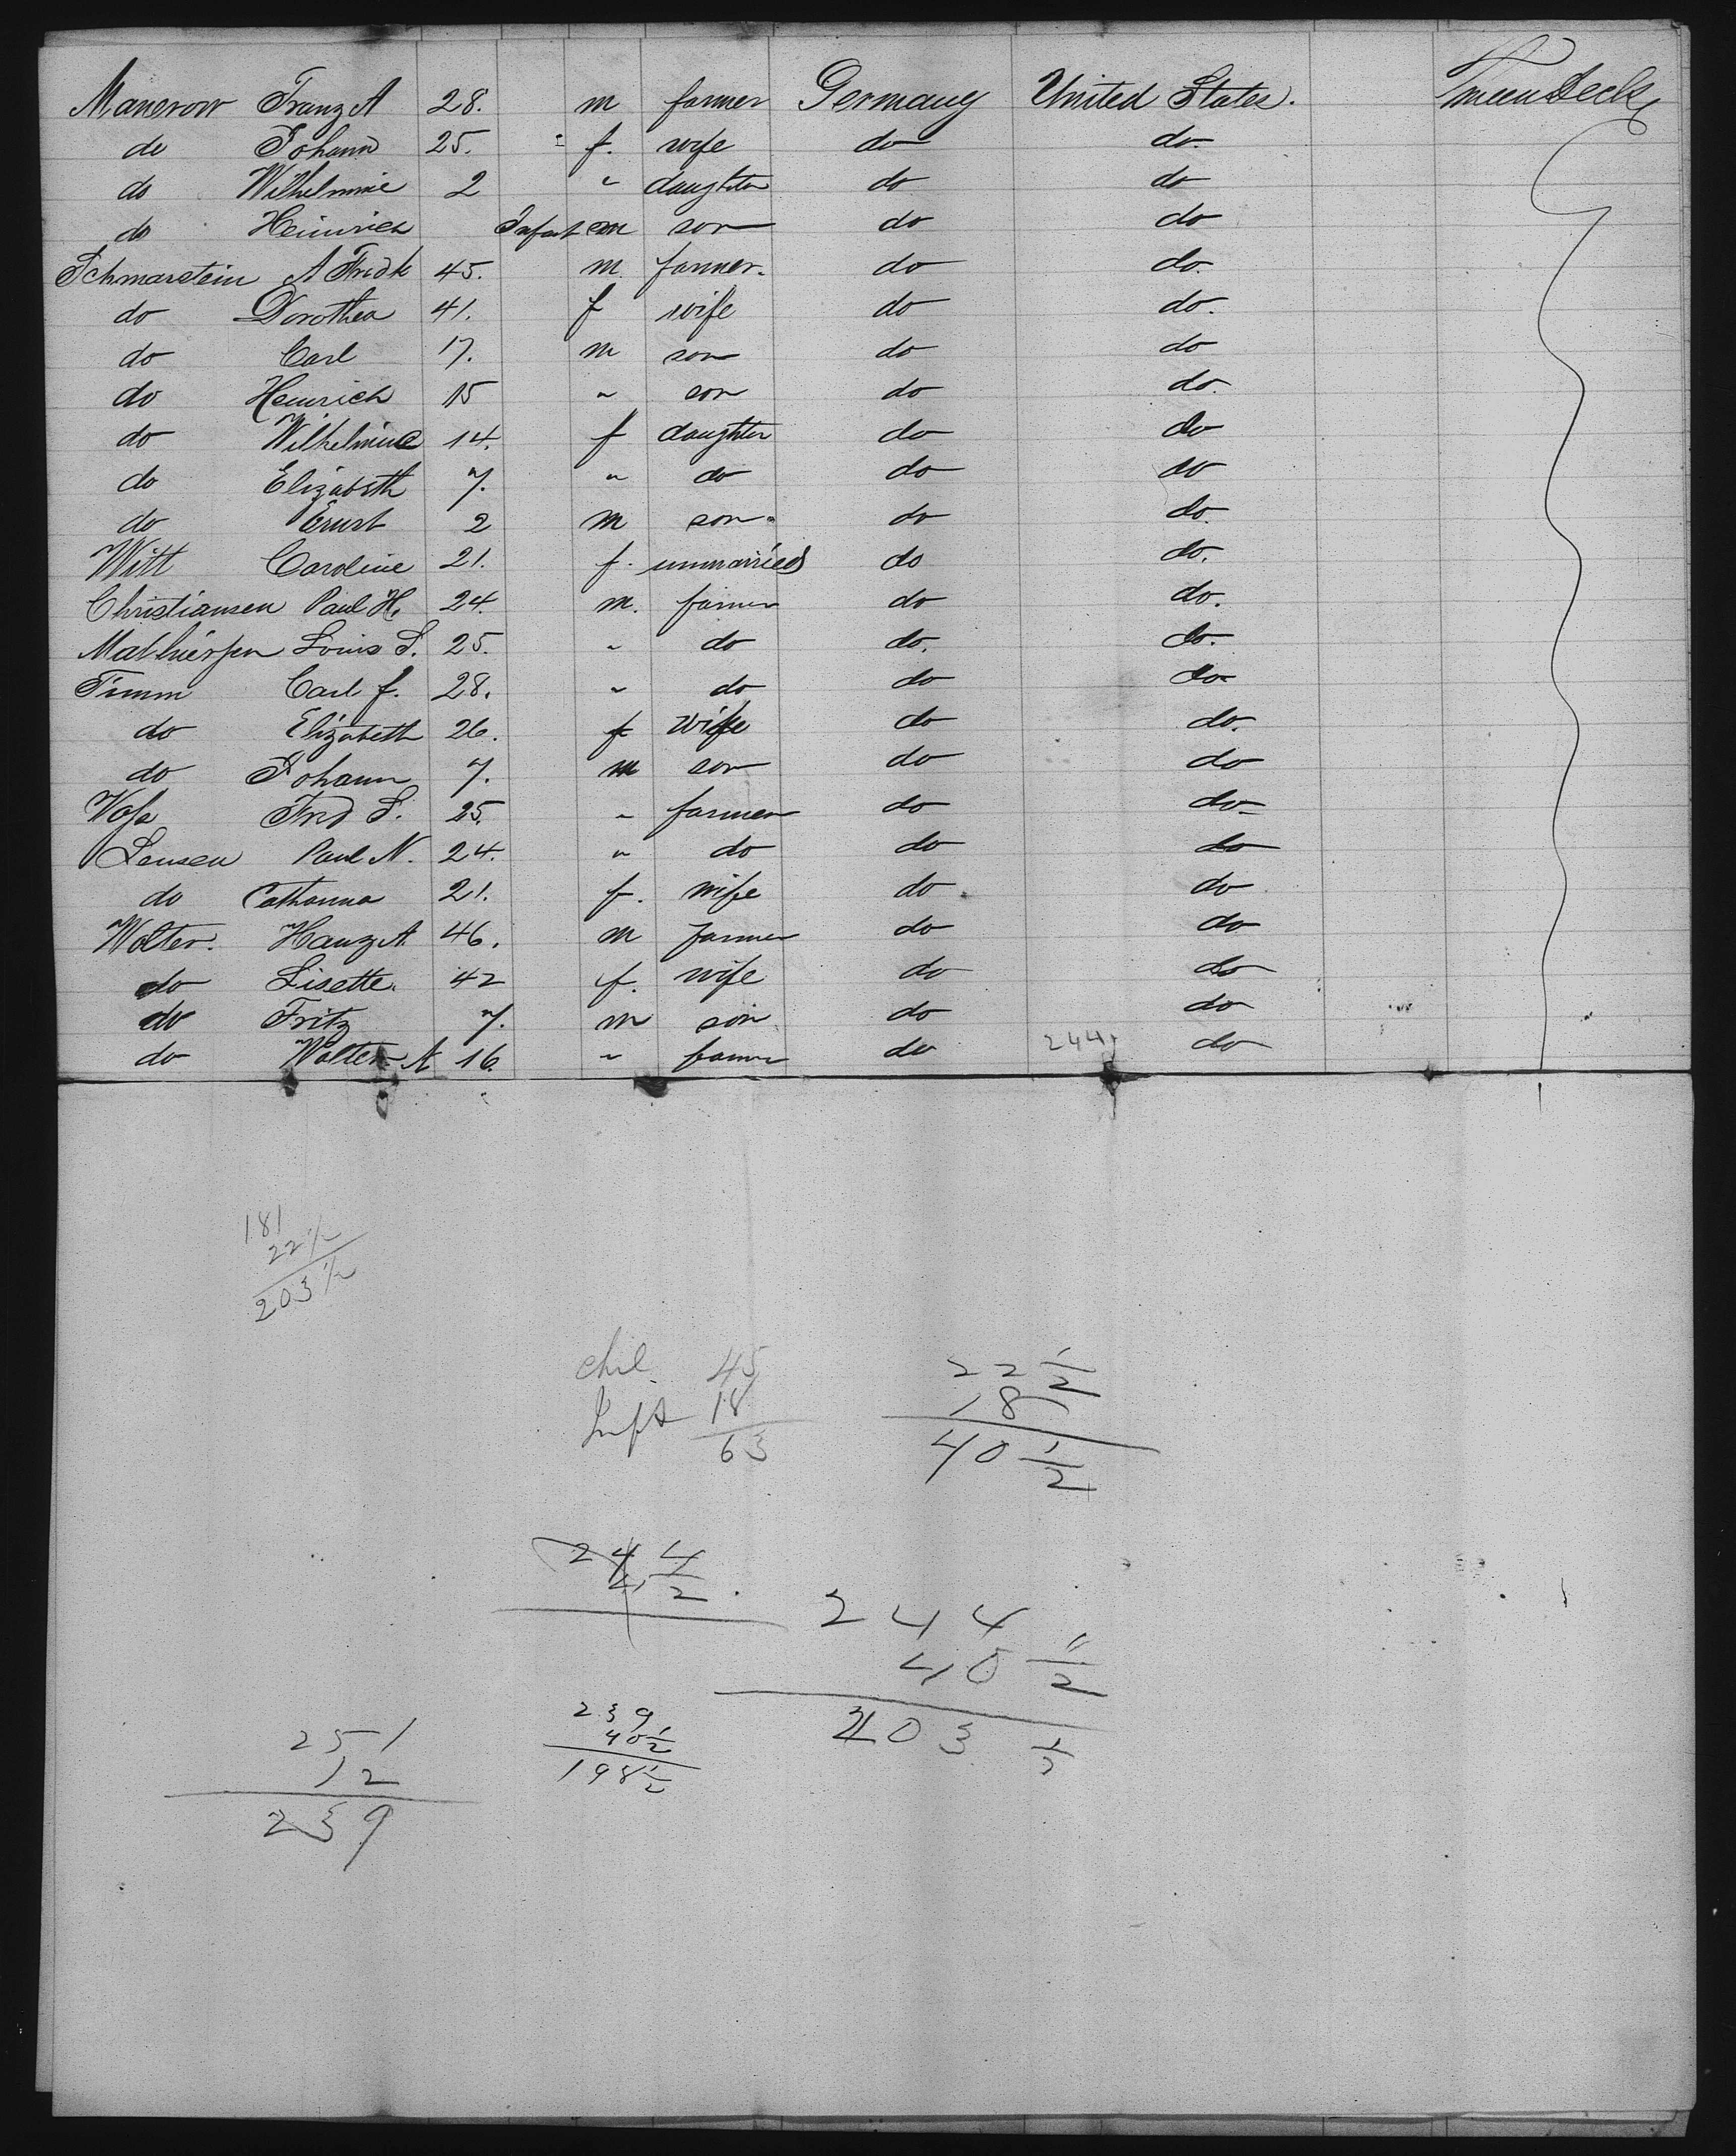 Manerow Franz A 28. m farmer Germany United States. Tween Deck
do Johann 25. f. wife do do.
do Wilhelmine 2 " daughter do do
do Heinrich Infant m son do do
Schmarstein A Fridk 45. m. farmer. do do.
do Dorothea 41. f wife do do.
do Carl 17. m son do do
do Heinrich 15 " son do do.
do Wilhelmine 14. f daughter do do
do Elizabeth 7. " do do do
do Ernst 2 m son. do do.
Witt Caroline 21. f. unmarried do do.
Christiansen Paul H. 24. m. farmer do do.
Mathiessen Louis L. 25. " do do. do.
Timm Carl f. 28. " do do do
do Elizabeth 26. f wife do do.
do Johann 7. m son do do
Voss Frd L. 25. " farmer do do
Jensen Paul N. 24. " do do do
do Catharina 21. f. wife do do
Wolter. Hanz A. 46. m farmer do do
do Lisette. 42 f. wife do do
do Fritz 7. m son do do
do Wolter A 16. " farmer do 244 do
181
22 1/2
203 1/2
chil 45
Inft 18
63
22 1/2
18
40 1/2
244
239
40 1/2
198 1/2
244
40 1/2
203 1/2
251
12
239